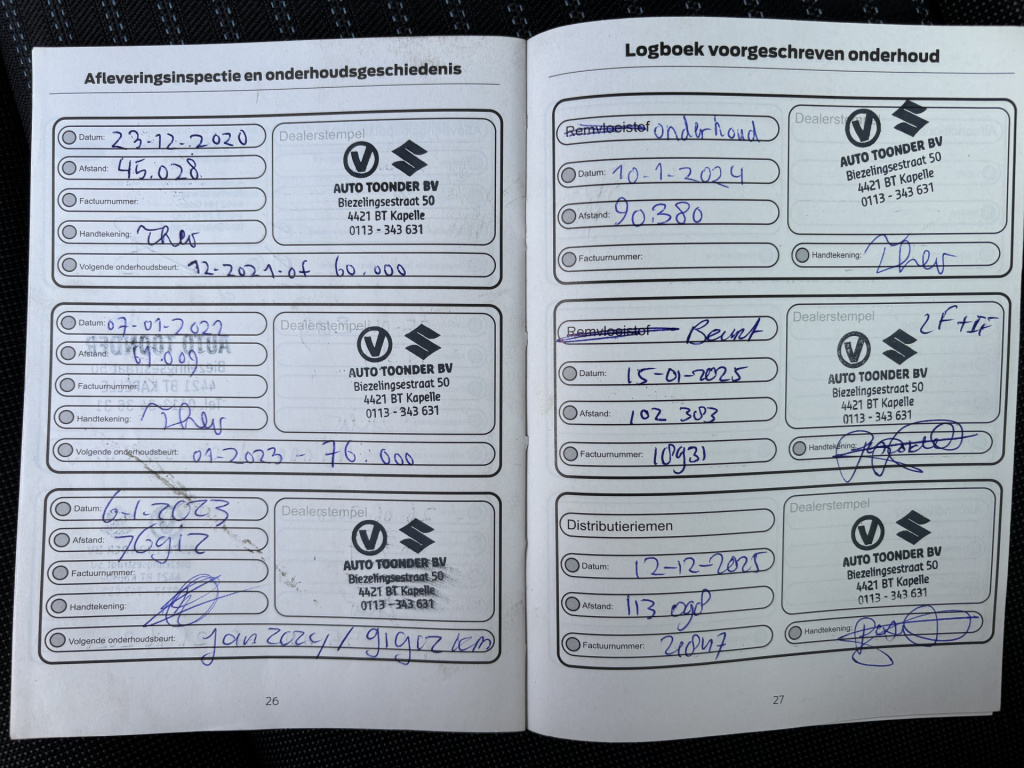 Afleveringsinspectie en onderhoudsgeschiedenis
Datum: 23-12-2020
Afstand: 45.028
Factuurnummer:
Handtekening:
Volgende onderhoudsbeurt: 12-2021-of 60.000
Dealerstempel
AUTO TOONDER BV
Biezelingsestraat 50
4421 BT Kapelle
0113 - 343 631
Datum: 07-01-2022
Afstand: 61.009
Factuurnummer:
Handtekening:
Volgende onderhoudsbeurt: 01-2023 - 76.000
Dealerstempel
AUTO TOONDER BV
Biezelingsestraat 50
4421 BT Kapelle
0113 - 343 631
Datum: 6-1-2023
Afstand: 76912
Factuurnummer:
Handtekening:
Volgende onderhoudsbeurt: Jan 2024 / 91912 km
Dealerstempel
AUTO TOONDER BV
Biezelingsestraat 50
4421 BT Kapelle
0113 - 343 631
26
Logboek voorgeschreven onderhoud
Remvloeistof onderhoud
Datum: 10-1-2024
Afstand: 90.380
Factuurnummer:
Dealerstempel
AUTO TOONDER BV
Biezelingsestraat 50
4421 BT Kapelle
0113 - 343 631
Handtekening:
Remvloeistof Beurt
Datum: 15-01-2025
Afstand: 102 383
Factuurnummer: 18931
Dealerstempel
AUTO TOONDER BV
Biezelingsestraat 50
4421 BT Kapelle
0113 - 343 631
Handtekening:
Distributieriemen
Datum: 12-12-2025
Afstand: 113 098
Factuurnummer: 20847
Dealerstempel
AUTO TOONDER BV
Biezelingsestraat 50
4421 BT Kapelle
0113 - 343 631
Handtekening:
27